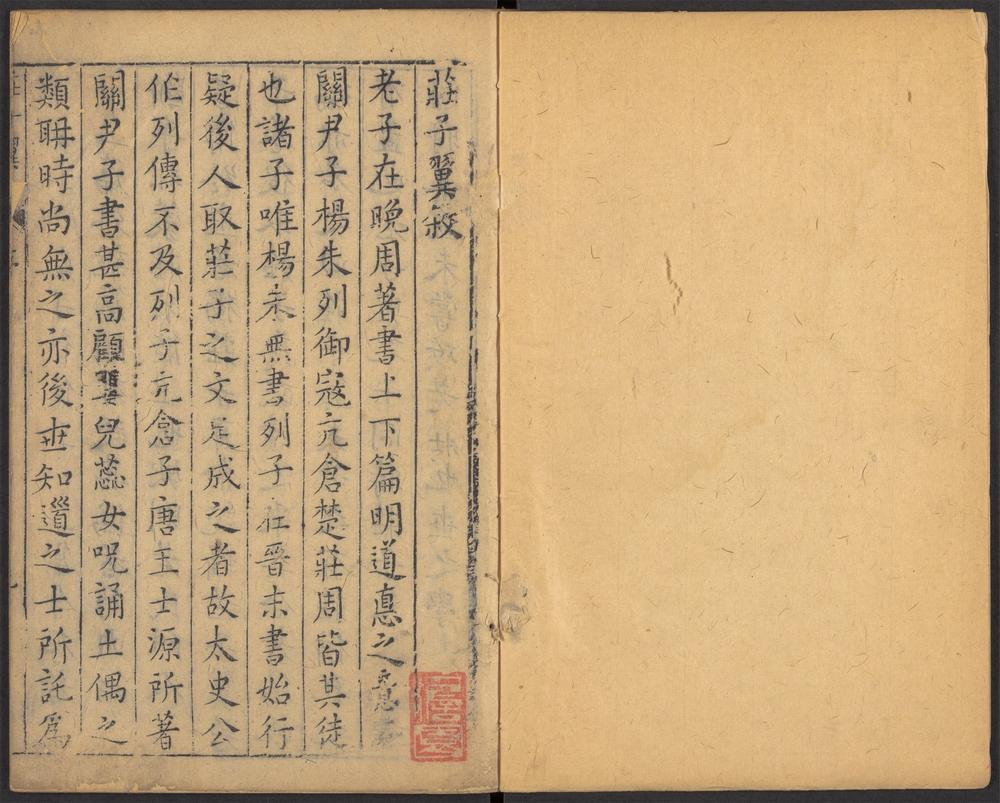 莊子翼叙
老子在晚周著書上下篇明道悳之意
關尹子楊朱列御寇亢倉楚莊周皆其徒
也諸子唯楊朱無書列子在晉末書始行
疑後人取莊子之文足成之者故太史公
作列傳不及列子亢倉子唐王士源所著
關尹子書甚高顧嬰兒蕊女呪誦土偶之
類聃時尚無之亦後世知道之士所託為